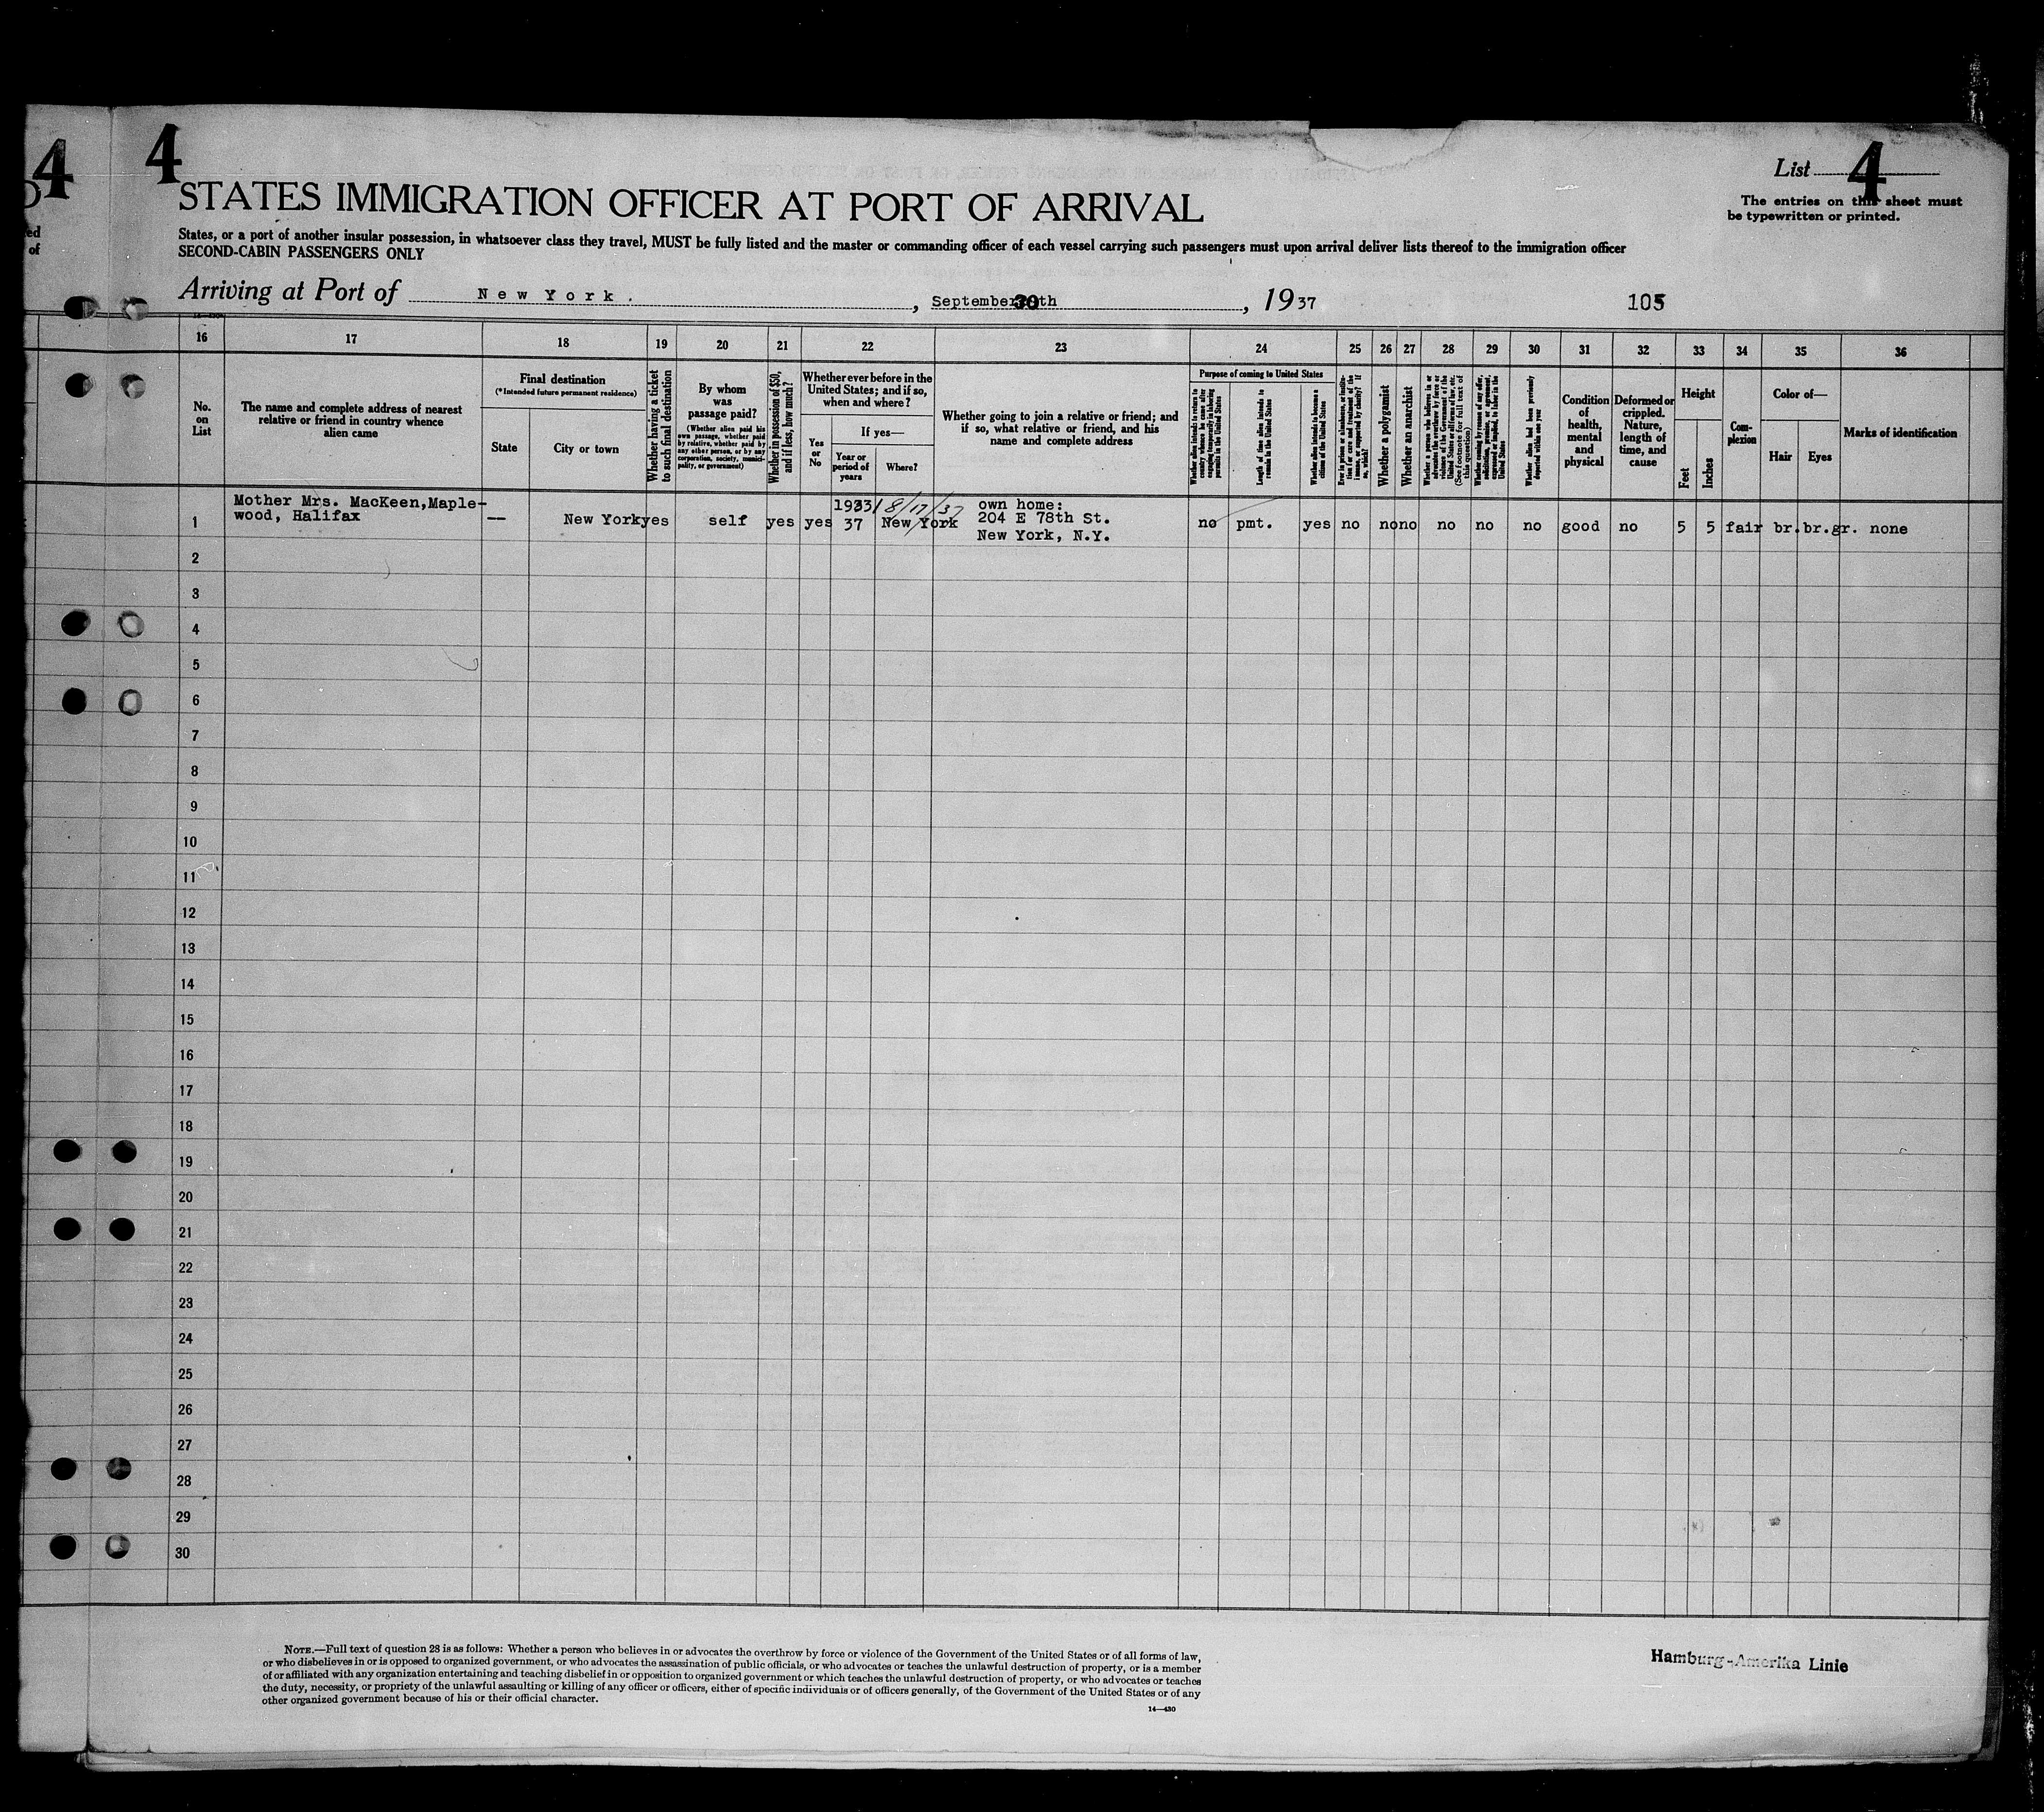 4
4
List 4
STATES IMMIGRATION OFFICER AT PORT OF ARRIVAL
The entries on this sheet must
be typewritten or printed.
ed
of
States, or a port of another insular possession, in whatsoever class they travel, MUST be fully listed and the master or commanding officer of each vessel carrying such passengers must upon arrival deliver lists thereof to the immigration officer
SECOND-CABIN PASSENGERS ONLY
Arriving at Port of New York. , September 30th , 1937
105
16 17 18 19 20 21 22 23 24 25 26 27 28 29 30 31 32 33 34 35 36
No.
on
List
The name and complete address of nearest
relative or friend in country whence
alien came
Final destination
(*Intended future permanent residence)
State
City or town
Whether having a ticket
to such final destination
By whom
was
passage paid?
(Whether alien paid his
own passage, whether paid
by relative, whether paid by
any other person, or by any
corporation, society, munici-
pality, or government)
Whether in possession of $50,
and if less, how much?
Whether ever before in the
United States; and if so,
when and where?
Yes
or
No
If yes—
Year or
period of
years
Where?
Whether going to join a relative or friend; and
if so, what relative or friend, and his
name and complete address
Purpose of coming to United States
Whether alien intends to return to
country whence he came after
engaging temporarily in laboring
pursuits in the United States
Length of time alien intends to
remain in the United States
Whether alien intends to become a
citizen of the United States
Ever in prison or almshouse, or institu-
tion for care and treatment of the
insane, or supported by charity? If
so, which?
Whether a polygamist
Whether an anarchist
Whether a person who believes in or
advocates the overthrow by force or
violence of the Government of the
United States or all forms of law, etc.
(See footnote for full text of
this question)
Whether coming by reason of any offer,
solicitation, promise, or agreement,
expressed or implied, to labor in the
United States
Whether alien had been previously
deported within one year
Condition
of
health,
mental
and
physical
Deformed or
crippled.
Nature,
length of
time, and
cause
Height
Feet
Inches
Com-
plexion
Color of—
Hair
Eyes
Marks of identification
Mother Mrs. MacKeen,Maple-
wood, Halifax
1 — New York yes self yes yes 1933/ 37 8/17/37 New York
own home:
204 E 78th St.
New York, N.Y.
no pmt. yes no no no no no no good no 5 5 fair br. br.gr. none
2
3
4
5
6
7
8
9
10
11
12
13
14
15
16
17
18
19
20
21
22
23
24
25
26
27
28
29
30
NOTE.—Full text of question 28 is as follows: Whether a person who believes in or advocates the overthrow by force or violence of the Government of the United States or of all forms of law,
or who disbelieves in or is opposed to organized government, or who advocates the assassination of public officials, or who advocates or teaches the unlawful destruction of property, or is a member
of or affiliated with any organization entertaining and teaching disbelief in or opposition to organized government or which teaches the unlawful destruction of property, or who advocates or teaches
the duty, necessity, or propriety of the unlawful assaulting or killing of any officer or officers, either of specific individuals or of officers generally, of the Government of the United States or of any
other organized government because of his or their official character.
14—430
Hamburg-Amerika Linie